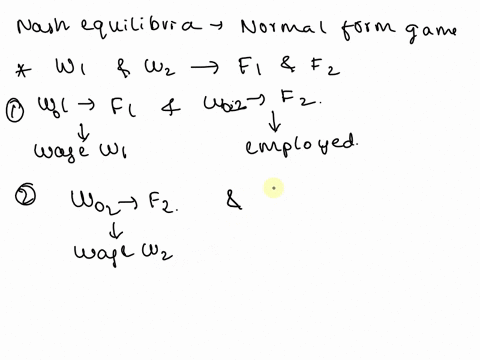 Nash equilibria → Normal form game
* W1 & W2 → F1 & F2
① → F1 & → F2.
↓ ↓
wage W1 employed.
② Wo2 → F2. &
↓
wage W2